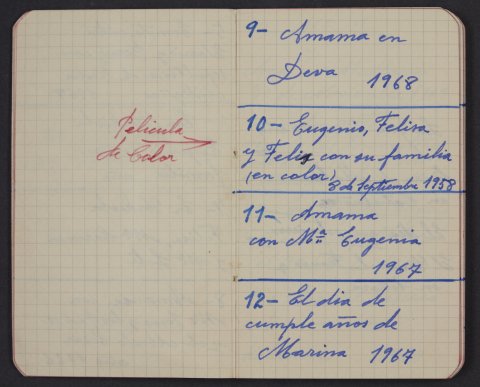 Pelicula
de Color
9- Amama en
Deva 1968
10- Eugenio, Felisa
y Felix con su familia
(en color) 8 de Septiembre 1958
11- Amama
con Mª Eugenia
1967
12- El dia de
cumple años de
Marina 1967